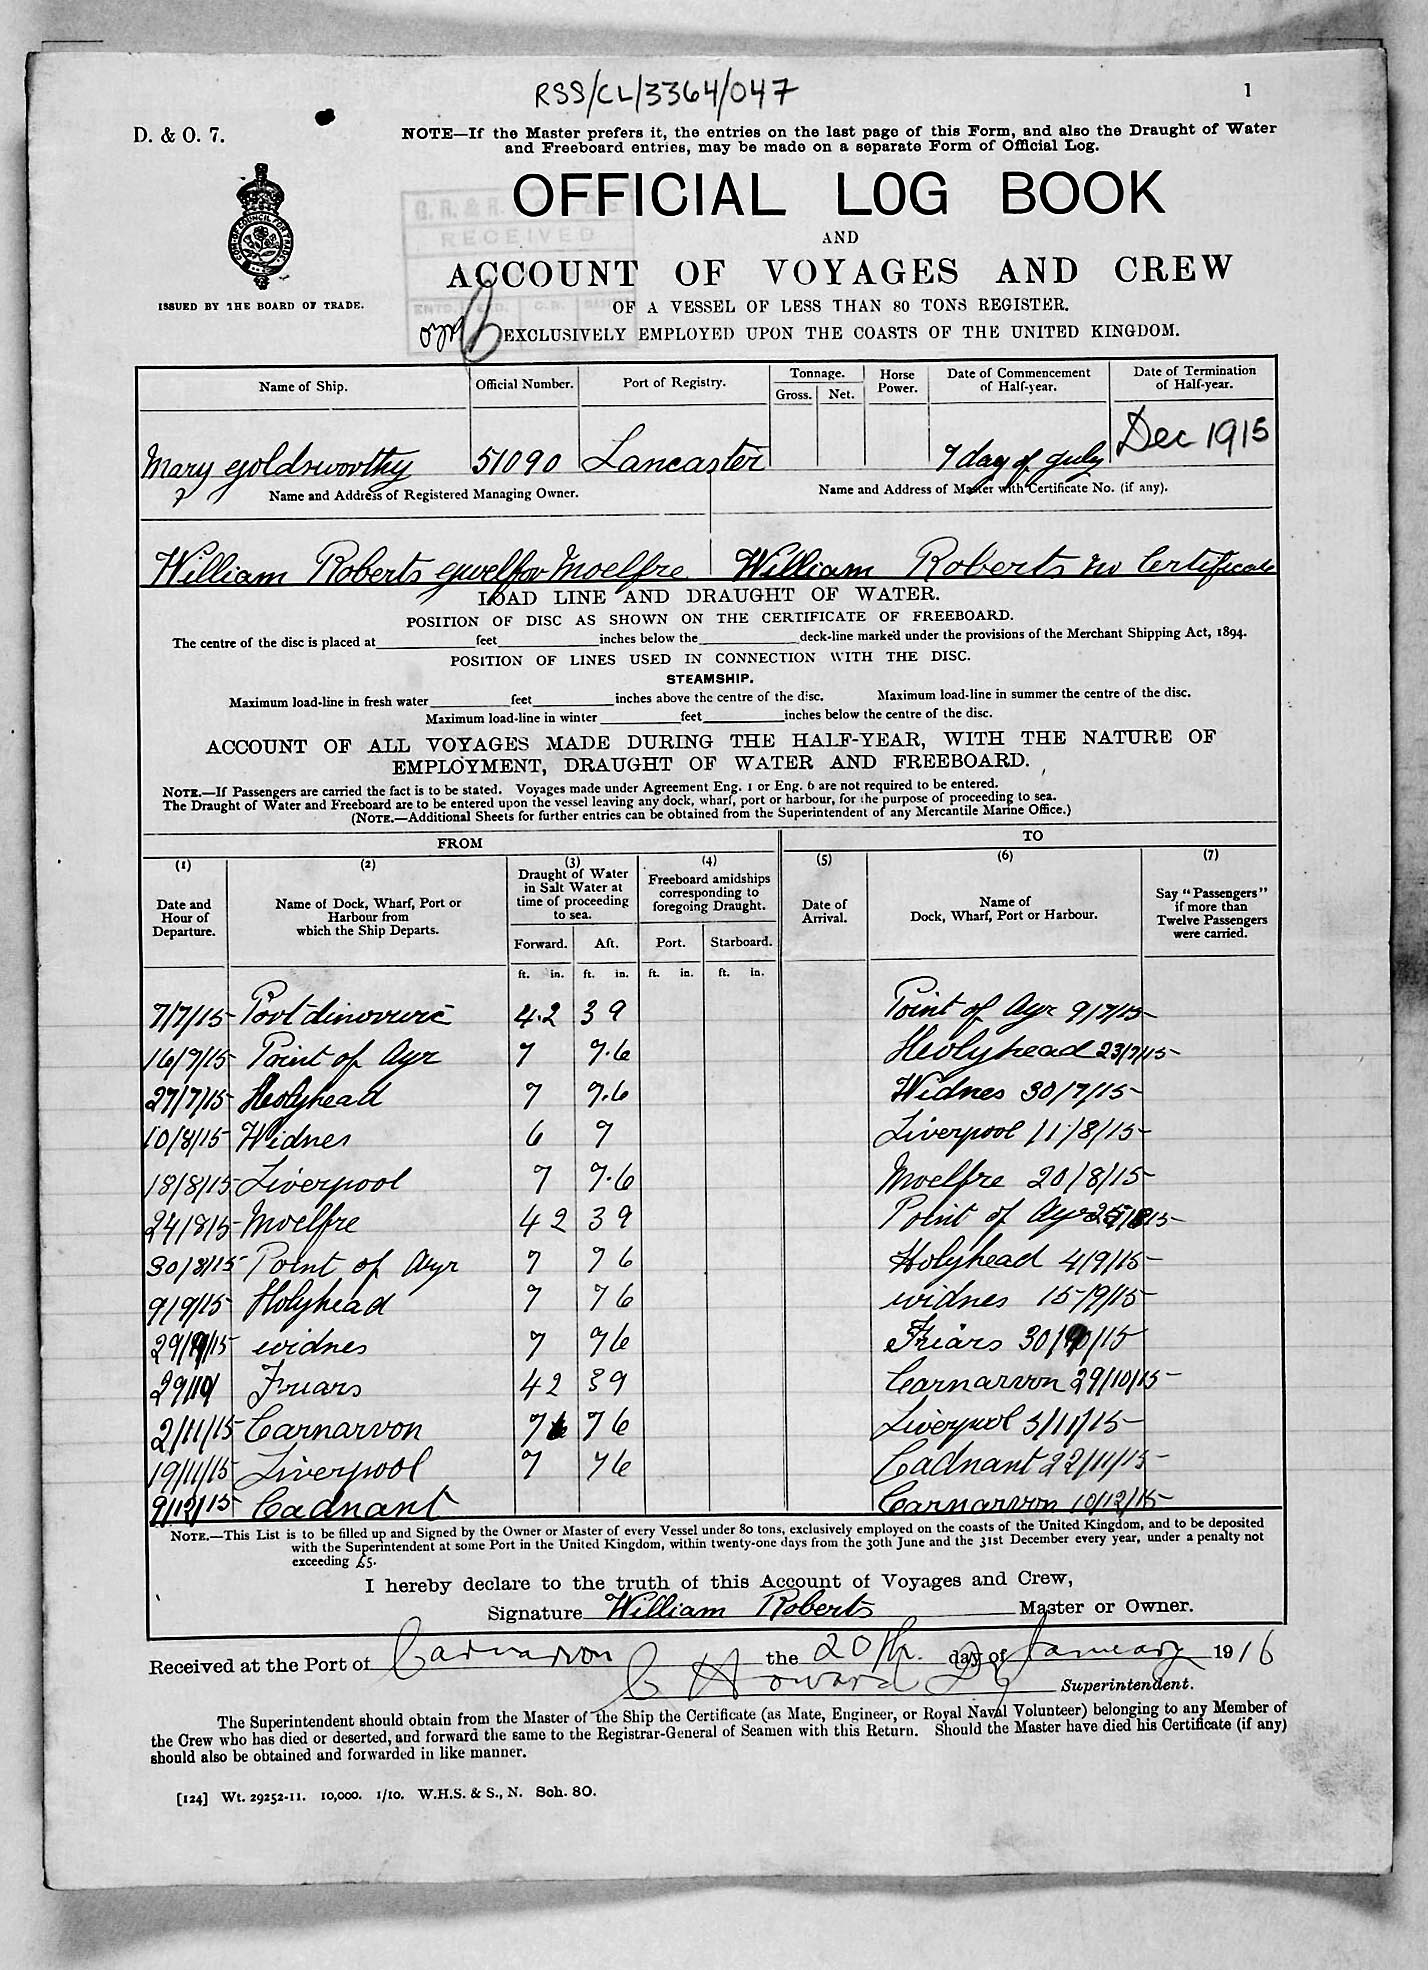 RSS/CL/3364/047
1
D. & O. 7.
NOTE—If the Master prefers it, the entries on the last page of this Form, and also the Draught of Water
and Freeboard entries, may be made on a separate Form of Official Log.
OFFICIAL LOG BOOK
AND
ACCOUNT OF VOYAGES AND CREW
OF A VESSEL OF LESS THAN 80 TONS REGISTER.
EXCLUSIVELY EMPLOYED UPON THE COASTS OF THE UNITED KINGDOM.
RECEIVED
ISSUED BY THE BOARD OF TRADE.
Name of Ship. Official Number. Port of Registry. Tonnage. Gross. Net. Horse Power. Date of Commencement of Half-year. Date of Termination of Half-year.
Mary Goldsworthy 51090 Lancaster 7 day of July Dec 1915
Name and Address of Registered Managing Owner. Name and Address of Master with Certificate No. (if any).
William Roberts Gwelfor Moelfre William Roberts no Certificate
LOAD LINE AND DRAUGHT OF WATER.
POSITION OF DISC AS SHOWN ON THE CERTIFICATE OF FREEBOARD.
The centre of the disc is placed at feet inches below the deck-line marked under the provisions of the Merchant Shipping Act, 1894.
POSITION OF LINES USED IN CONNECTION WITH THE DISC.
STEAMSHIP.
Maximum load-line in fresh water feet inches above the centre of the disc. Maximum load-line in summer the centre of the disc.
Maximum load-line in winter feet inches below the centre of the disc.
ACCOUNT OF ALL VOYAGES MADE DURING THE HALF-YEAR, WITH THE NATURE OF
EMPLOYMENT, DRAUGHT OF WATER AND FREEBOARD.
NOTE.—If Passengers are carried the fact is to be stated. Voyages made under Agreement Eng. 1 or Eng. 6 are not required to be entered.
The Draught of Water and Freeboard are to be entered upon the vessel leaving any dock, wharf, port or harbour, for the purpose of proceeding to sea.
(NOTE.—Additional Sheets for further entries can be obtained from the Superintendent of any Mercantile Marine Office.)
FROM TO
(1) (2) (3) (4) (5) (6) (7)
Date and Hour of Departure.
Name of Dock, Wharf, Port or Harbour from which the Ship Departs.
Draught of Water in Salt Water at time of proceeding to sea.
Freeboard amidships corresponding to foregoing Draught.
Date of Arrival.
Name of Dock, Wharf, Port or Harbour.
Say "Passengers" if more than Twelve Passengers were carried.
Forward. Aft. Port. Starboard.
ft. in. ft. in. ft. in. ft. in.
7/7/15 Portdinorwic 4.2 3 9 Point of Ayr 9/7/15
16/7/15 Point of Ayr 7 7.6 Holyhead 23/7/15
27/7/15 Holyhead 7 7.6 Widnes 30/7/15
10/8/15 Widnes 6 7 Liverpool 11/8/15
18/8/15 Liverpool 7 7.6 Moelfre 20/8/15
24/8/15 Moelfre 4 2 3 9 Point of Ayr
30/8/15 Point of Ayr 7 7 6 Holyhead 4/9/15
9/9/15 Holyhead 7 7 6 widnes 15/9/15
29/9/15 widnes 7 7 6 Friars
29/10 Friars 4 2 3 9 Carnarvon 29/10/15
2/11/15 Carnarvon 7 7 6 Liverpol 3/11/15
19/11/15 Liverpool 7 7 6 Cadnant 22/11/15
9/12/15 Cadnant Carnarvon 10/12/15
NOTE.—This List is to be filled up and Signed by the Owner or Master of every Vessel under 80 tons, exclusively employed on the coasts of the United Kingdom, and to be deposited
with the Superintendent at some Port in the United Kingdom, within twenty-one days from the 30th June and the 31st December every year, under a penalty not
exceeding £5.
I hereby declare to the truth of this Account of Voyages and Crew,
Signature William Roberts Master or Owner.
Received at the Port of Carnarvon the 20th. day of January 1916
C Howard Superintendent.
The Superintendent should obtain from the Master of the Ship the Certificate (as Mate, Engineer, or Royal Naval Volunteer) belonging to any Member of
the Crew who has died or deserted, and forward the same to the Registrar-General of Seamen with this Return. Should the Master have died his Certificate (if any)
should also be obtained and forwarded in like manner.
[124] Wt. 29252-11. 10,000. 1/10. W.H.S. & S., N. Sch. 80.